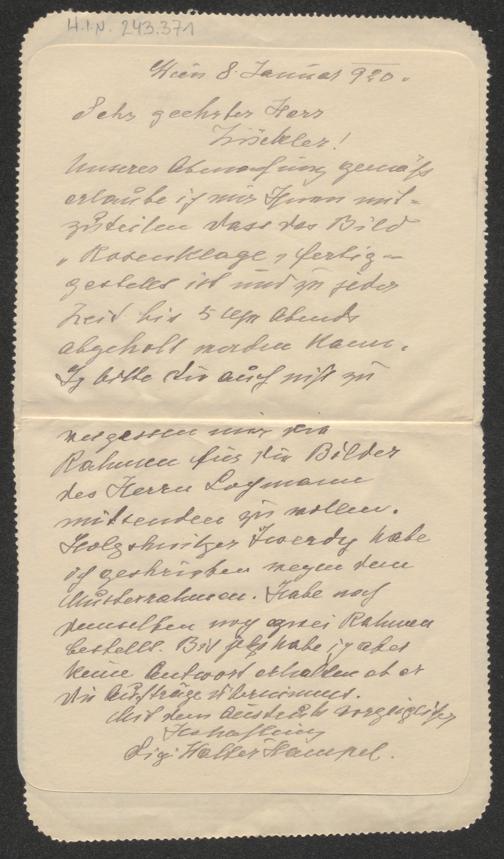 H.I.N. 243.371
Wien 8. Januar 920.
Sehr geehrter Herr
Zwickler!
Unserer Abmachung gemäß
erlaube ich mir Ihnen mit=
zuteilen dass das Bild
„Rosenklage" fertig=
gestellt ist und zu jeder
Zeit bis 5 Uhr Abends
abgeholt werden kann.
Ich bitte Sie auch nicht zu
vergessen mir die
Rahmen für die Bilder
des Herrn
mitsenden zu wollen.
Holzschnitzer Zwerdy habe
ich geschrieben wegen dem
Musterrahmen. Habe noch
demselben noch zwei Rahmen
bestellt. Bis jetzt habe ich aber
keine Antwort erhalten ob er
die Aufträge übernimmt.
Mit dem Ausdruck vorzüglicher
Hochachtung
Sig. Walter Hampel.